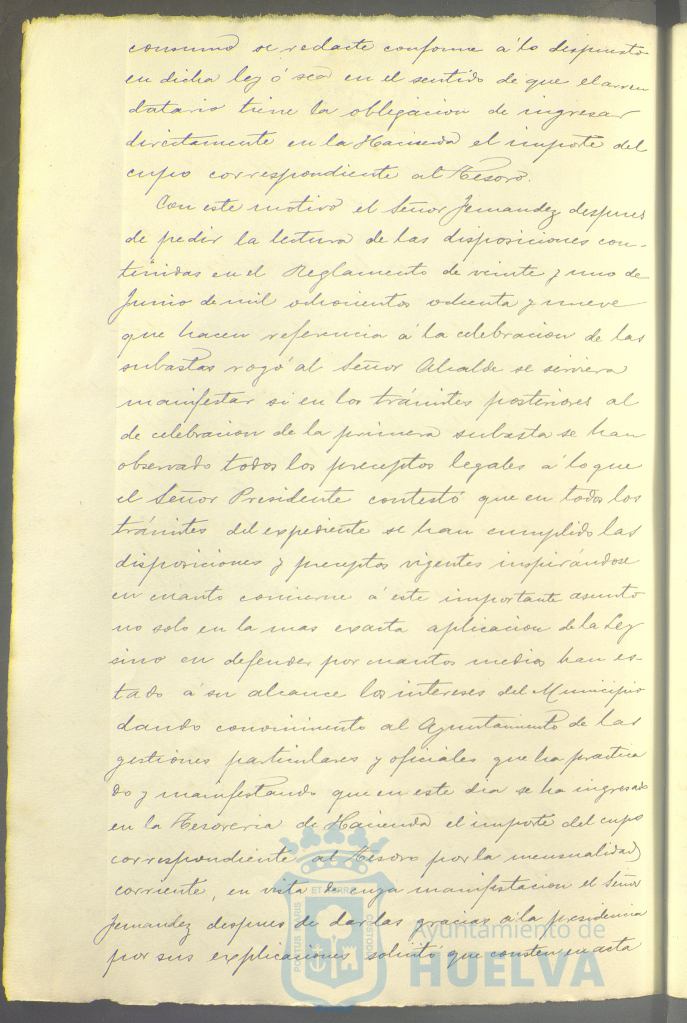 consumo se redacte conforme á lo dispuesto
en dicha ley ó sea en el sentido de que el arren
datario tiene la obligacion de ingresar
directamente en la Hacienda el importe del
cupo correspondiente al Tesoro.
Con este motivo el Señor Jernandez despues
de pedir la lectura de las disposiciones con-
tinidas en el Reglamento de veinte y uno de
Junio de mil ochocientos ochenta y nueve
que hacen referencia á la celebracion de las
subastas rogó al Señor Alcalde se sirviera
manifestar si en los trámites posteriores al
de celebracion de la primera subasta se han
observado todos los preceptos legales á lo que
el Señor Presidente contestó que en todos los
trámites del expediente se han cumplido las
disposiciones y preceptos vigentes inspirándose
en cuanto concierne á este importante asunto
no solo en la mas exacta aplicacion de la Ley
sino en defender por cuantos medios han es-
tado á su alcance los intereses del Municipio
dando conocimiento al Ayuntamiento de las
gestiones particulares y oficiales que ha practica
do y manifestando que en este dia se ha ingresado
en la Tesoreria de Hacienda el importe del cupo
correspondiente al Tesoro por la mensualidad
corriente, en vista de cuya manifestacion el Señor
Jernandez despues de dar las gracias á la presidencia
por sus explicaciones solicitó que consten en acta
Ayuntamiento de
HUELVA